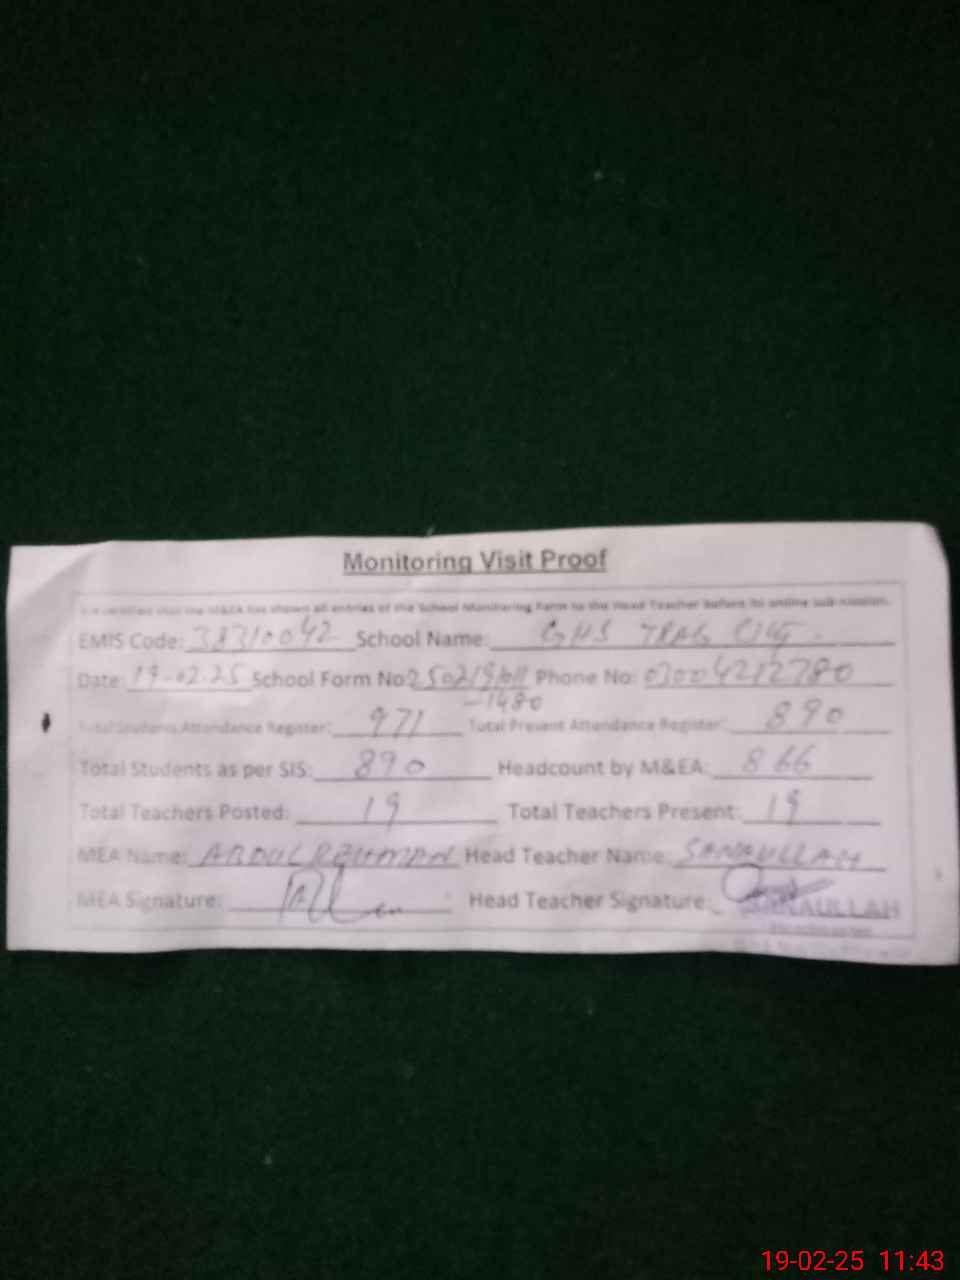 Monitoring Visit Proof
It is certified that the M&EA has shown all entries of the School Monitoring Form to the Head Teacher before its online submission.
EMIS Code: 38310042 School Name: GHS TRAG CITY.
Date: 19-02-25 School Form No 250219/011 Phone No: 03004212780
-1480
Total Students Attendance Register: 971 Total Present Attendance Register: 890
Total Students as per SIS: 890 Headcount by M&EA: 866
Total Teachers Posted: 19 Total Teachers Present: 19
MEA Name: ABDUL REHMAN Head Teacher Name: SANAULLAH
MEA Signature: Head Teacher Signature:
SANAULLAH
19-02-25 11:43